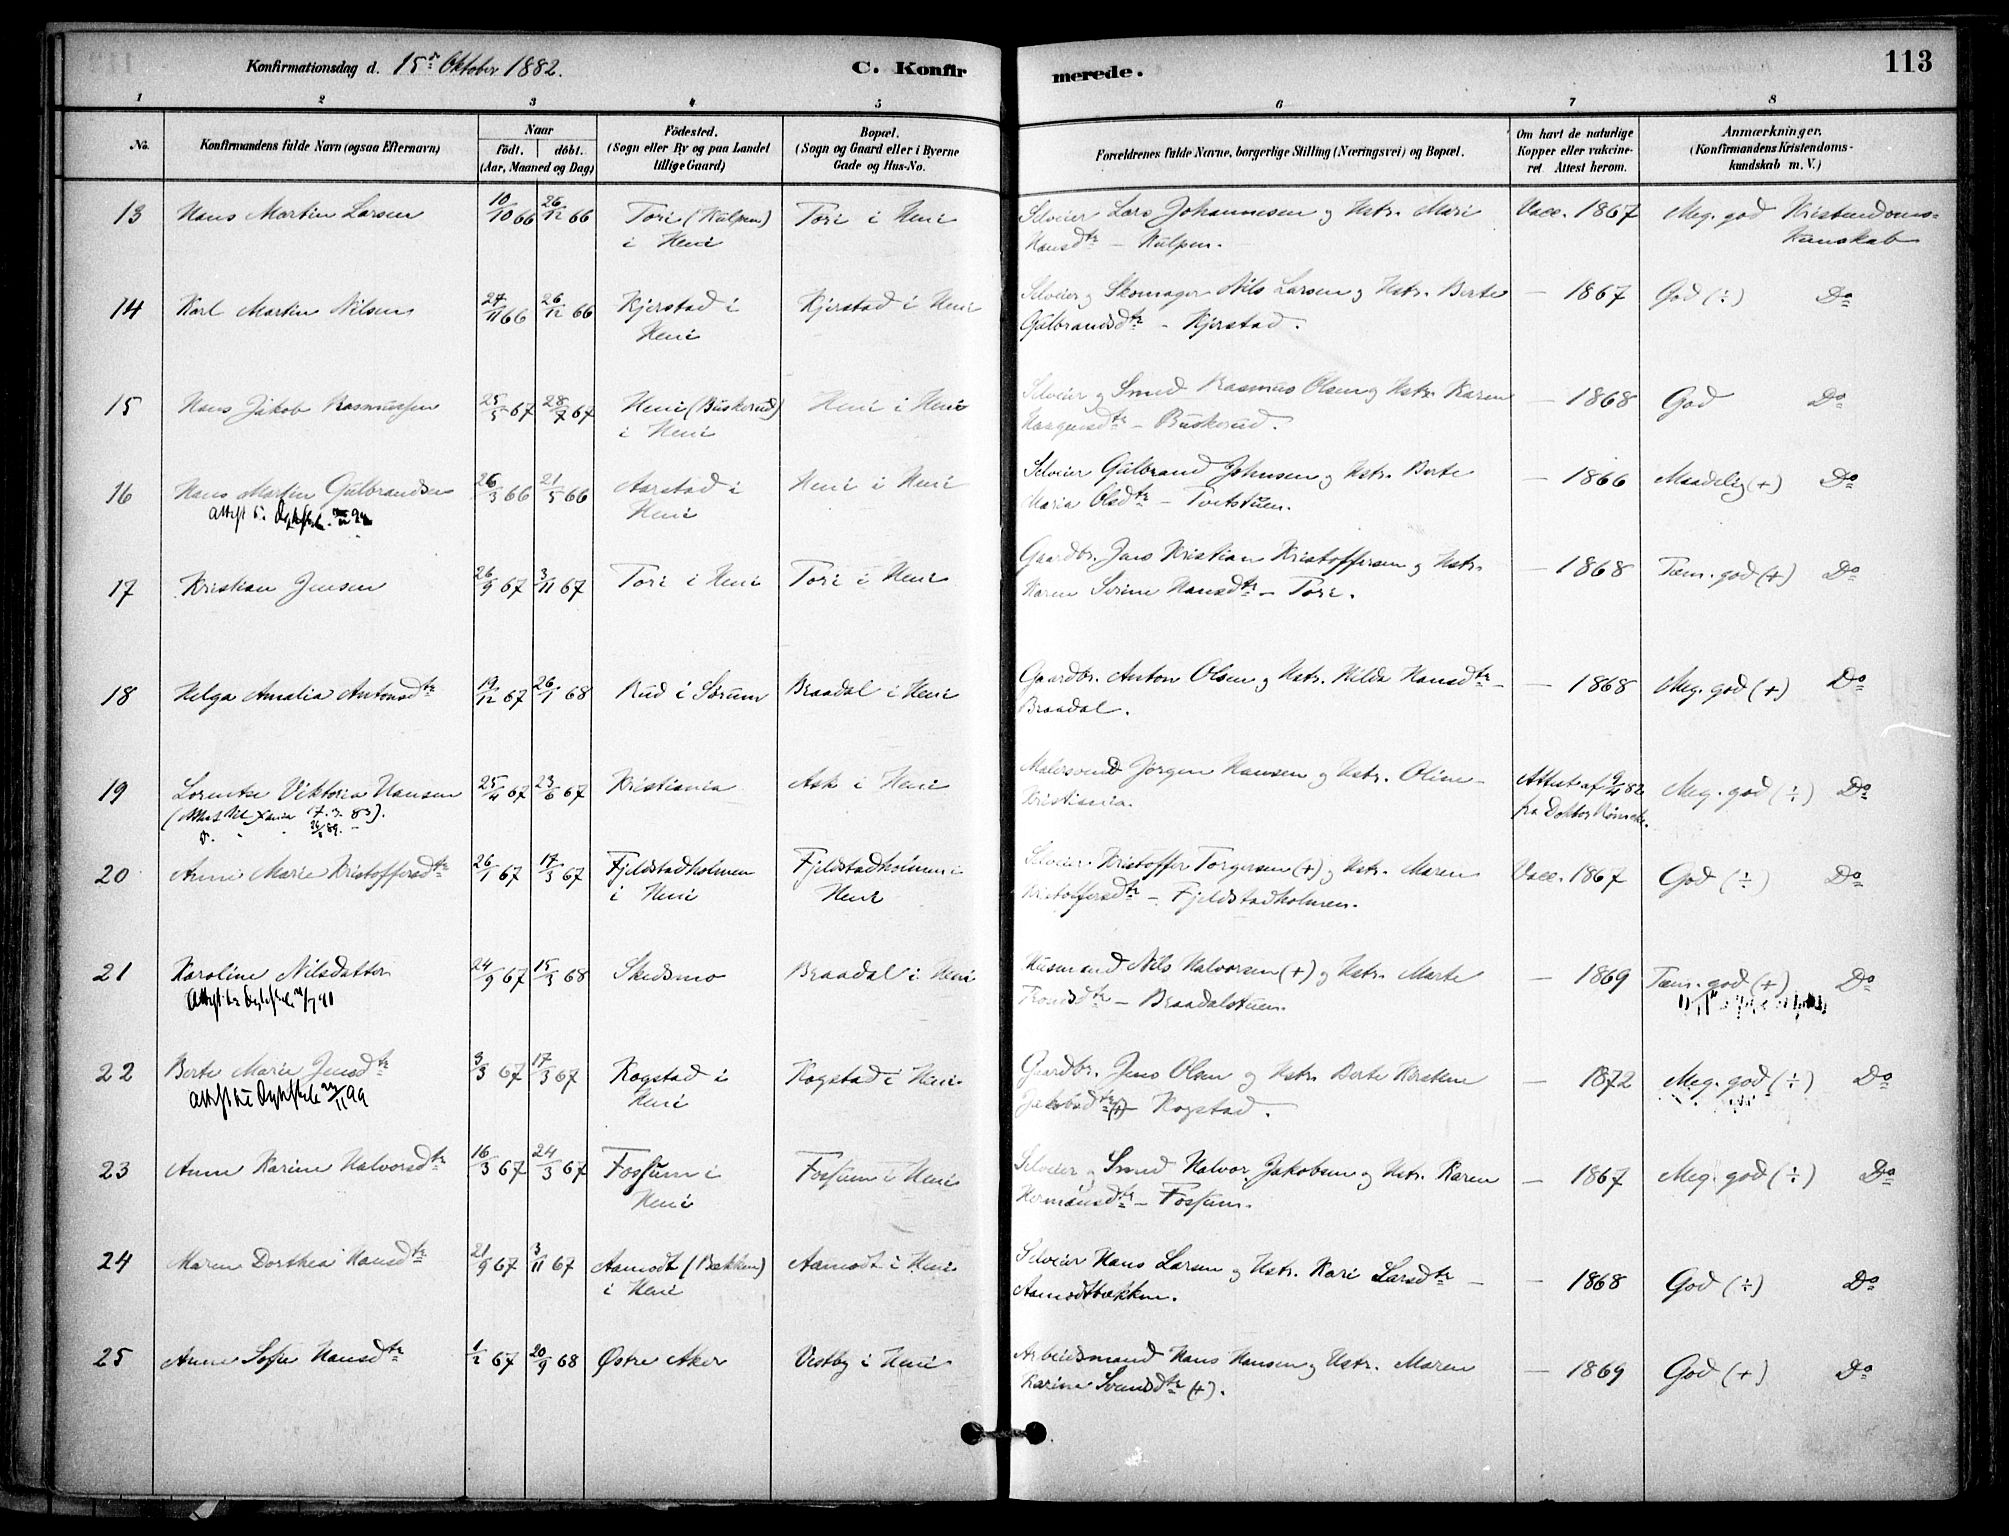 Konfirmationsdag d. 15de Oktober 1882.
C. Konfir
merede.
113
1 2 3 4 5 6 7 8
No.
Konfirmandens fulde Navn (ogsaa Efternavn)
Naar
födt. döbt.
(Aar, Maaned og Dag)
Födested.
(Sogn eller By og paa Landet
tillige Gaard)
Bopæl.
(Sogn og Gaard eller i Byerne
Gade og Hus-No.
Forældrenes fulde Navne, borgerlige Stilling (Næringsvei) og Bopæl.
Om havt de naturlige
Kopper eller vakcine-
ret Attest herom.
Anmærkninger.
(Konfirmandens Kristendoms-
kundskab m. V.)
13 Hans Martin Larsen 10/10 66 26/12 66 Tori (Kulpen) Tori i Heni Selveier Lars Johannesen og Hstr. Mari Vacc. 1867 Meg. god Kristendoms-
i Heni Hansdtr – Kulpen. Kunskab
14 Karl Martin Nilsen 27/11 66 26/12 66 Kjerstad i Kjerstad i Heni Selveier og Skomager Nils Larsen og Hstr. Berte – 1867 God (÷) Do
Heni Gulbrandsdtr – Kjerstad.
15 Hans Jakob Rasmussen 25/5 67 28/7 67 Heni (Buskerud) Heni i Heni Selveier og Smed Rasmus Olsen og Hstr. Karen – 1868 God Do
i Heni Haagensdtr – Buskerud.
16 Hans Martin Gulbrandsen 26/3 66 21/5 66 Aarstad i Heni i Heni Selveier Gulbrand Johnsen og Hstr. Berte – 1866 Maadelig (+) Do
Heni Maria Olsdtr – Tvetstuen.
17 Kristian Jensen 26/9 67 3/11 67 Tori i Heni Tori i Heni Gaardbr. Jens Kristian Kristoffersen og Hstr. – 1868 Tem. god (+) Do
Karen Serine Hansdtr – Tori.
18 Helga Amalia Antonsdtr 19/12 67 26/1 68 Rud i Sørum Braadal i Heni Gaardbr. Anton Olsen og Hstr. Hilda Hansdtr – – 1868 Meg. god (+) Do
Braadal.
19 Lorentse Viktoria Hansen 25/4 67 23/6 67 Kristiania Ask i Heni Malersvend Jørgen Hansen og Hstr. Oline – Attest af 9/4 82 Meg. god (÷) Do
(Attest til Xania 17.3.83). Kristiania. fra Doktor
20 Anne Marie Kristoffersdtr 26/1 67 17/3 67 Fjeldstadholmen Fjeldstadholmen i Selveier Kristoffer Torgersen (+) og Hstr. Maren Vacc. 1867 God (÷) Do
i Heni Heni Kristoffersdtr – Fjeldstadholmen.
21 Karoline Nilsdatter 24/9 67 15/3 68 Skedsmo Braadal i Heni Husmand Nils Halvorsen (+) og Hstr. Marte – 1869 Tem. god (+) Do
Trondsdtr – Braadalstuen.
22 Berte Marie Jensdtr 3/3 67 17/3 67 Kogstad i Kogstad i Heni Gaardbr. Jens Olsen og Hstr. Berte Kirstine – 1872 Meg. god (÷) Do
Heni Jakobsdtr (+) Kogstad.
23 Anne Karine Halvorsdtr 16/3 67 24/3 67 Fossum i Fossum i Heni Selveier og Smed Halvor Jakobsen og Hstr. Karen – 1867 Meg. god (÷) Do
Heni Hermansdtr – Fossum.
24 Maren Dorthea Hansdtr 21/9 67 3/11 67 Aamodt (Bækken) Aamodt i Heni Selveier Hans Larsen og Hstr. Kari Larsdtr – – 1868 God (÷) Do
i Heni Aamodtbækken.
25 Anne Sofie Hansdtr 1/2 67 20/9 68 Østre Aker Vestby i Heni Arbeidsmand Hans Hansen og Hstr. Maren – 1869 God (+) Do
Karine Svensdtr (+).